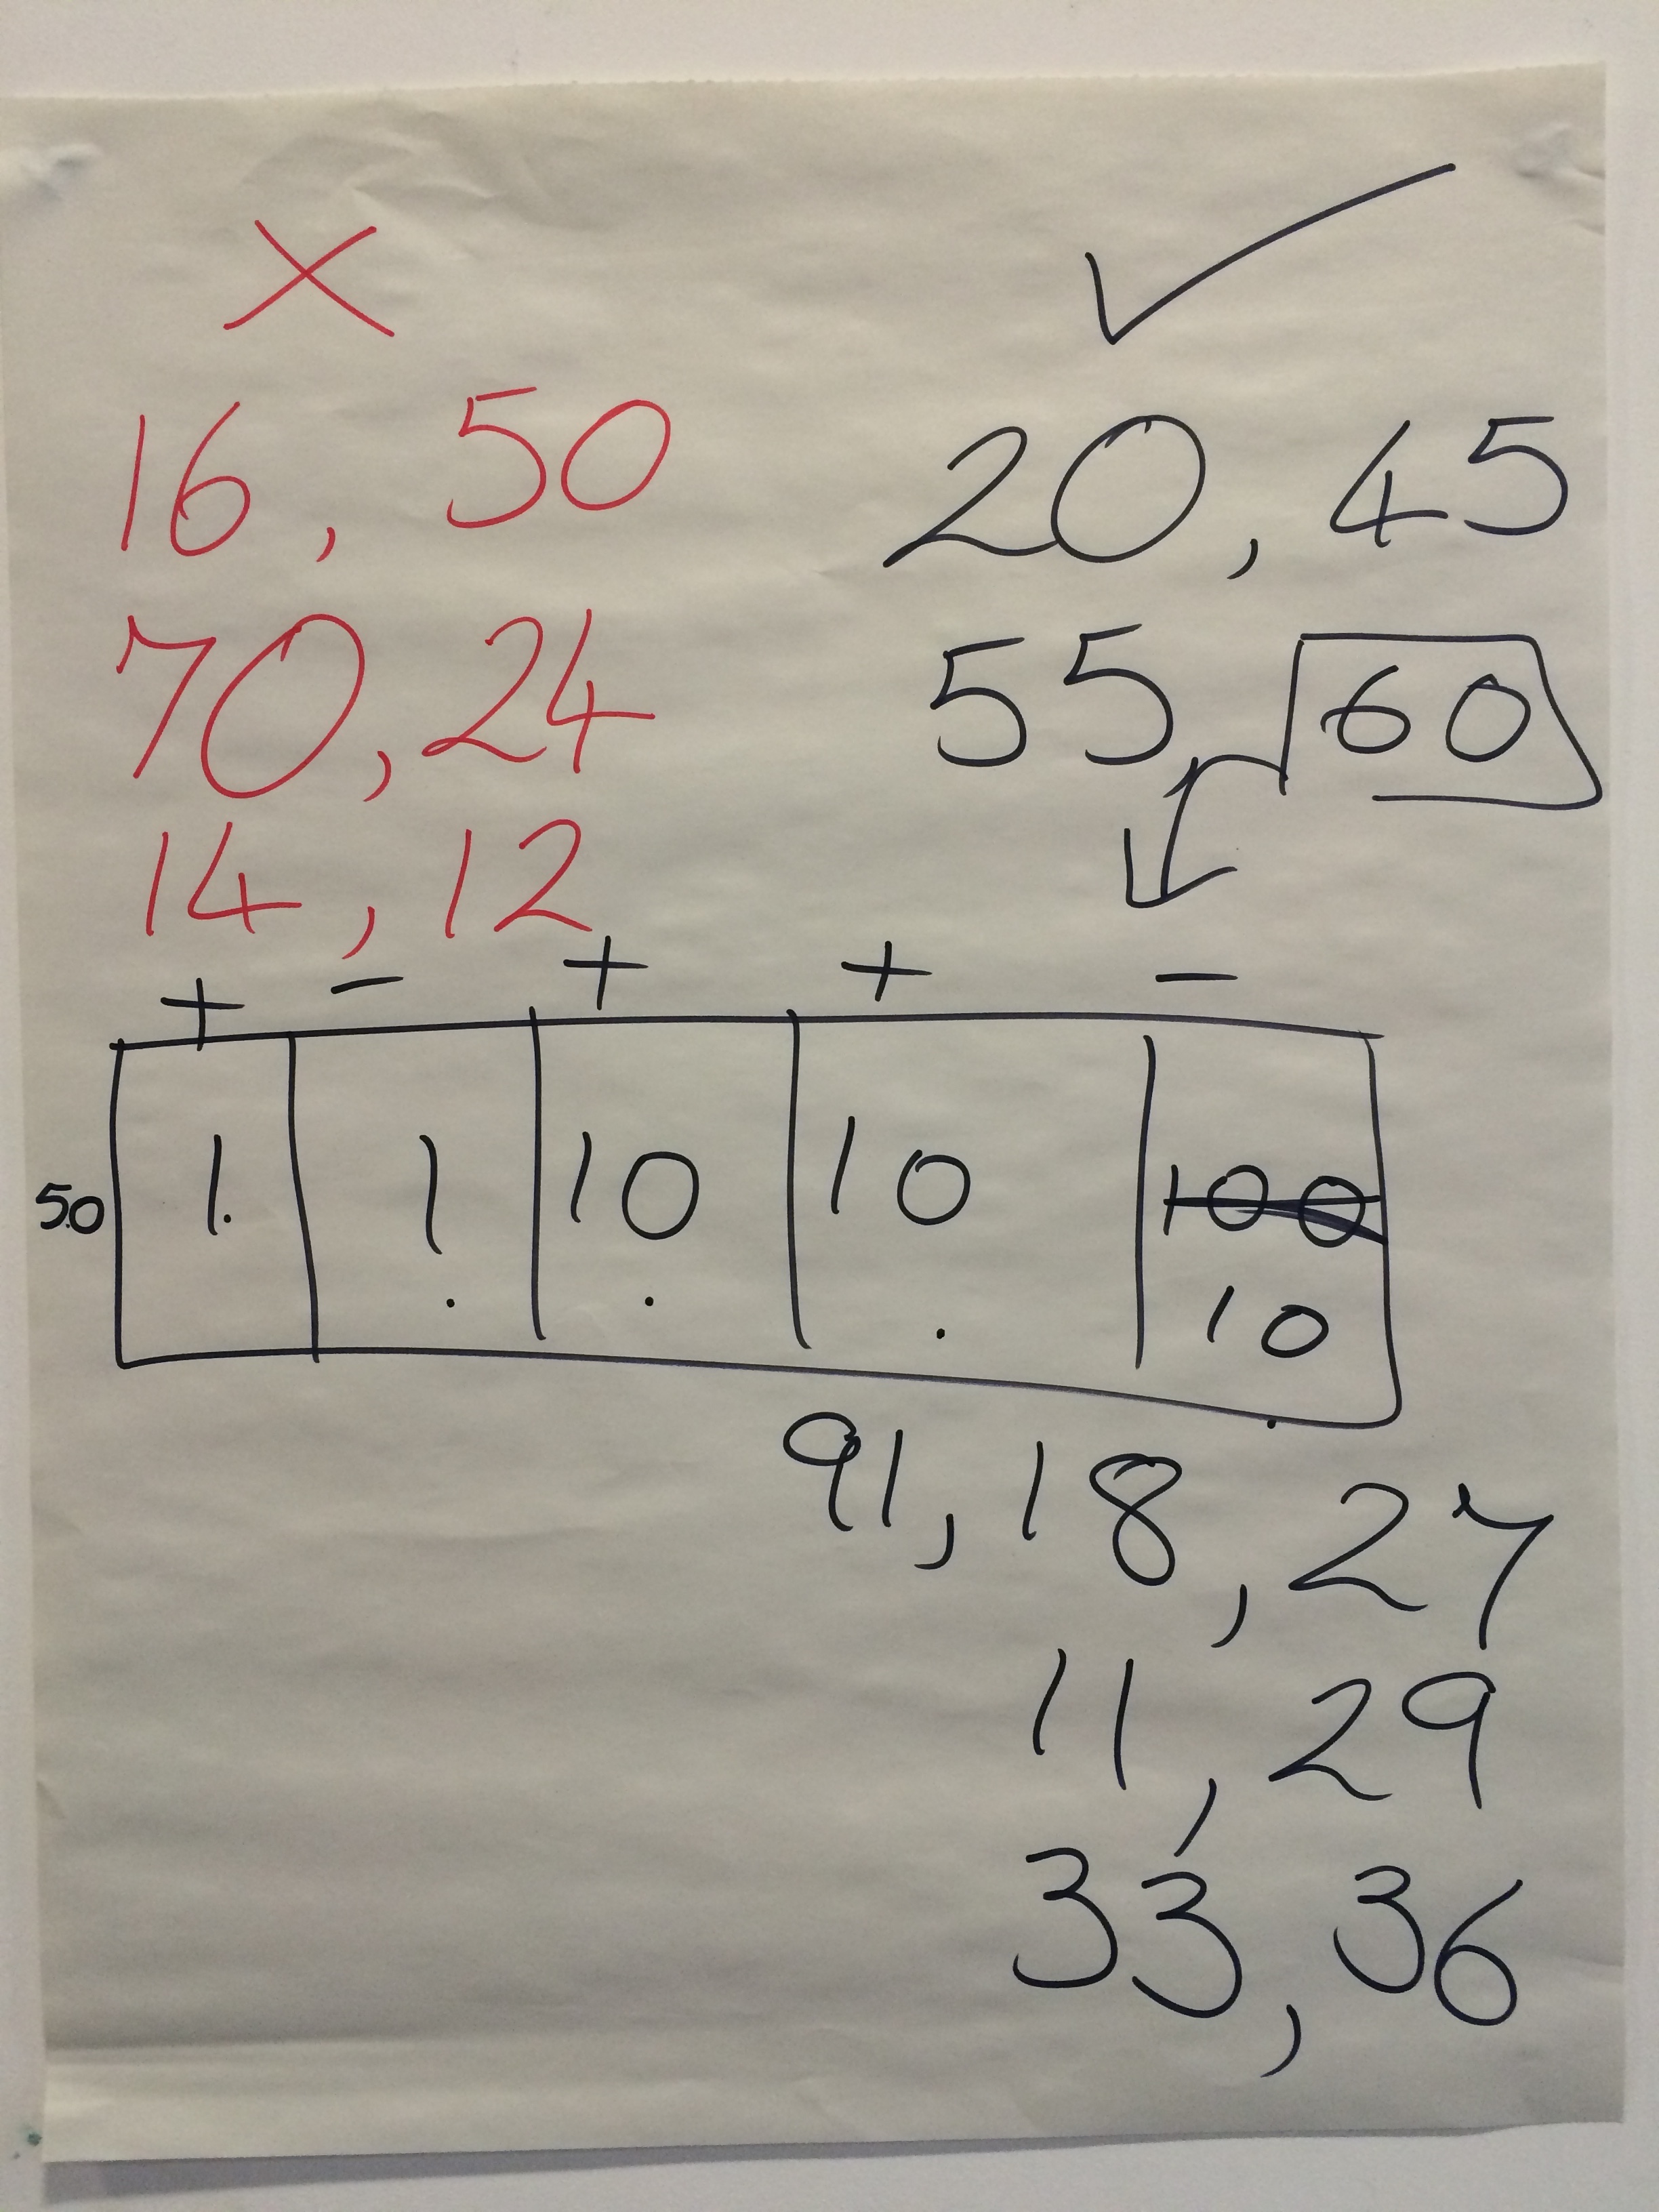 ✗ ✓
16, 50 20, 45
70, 24 55, 60
14, 12
+ - + + -
50 1. 1 10 10 ~~100~~
10
91, 18, 27
11, 29
33, 36